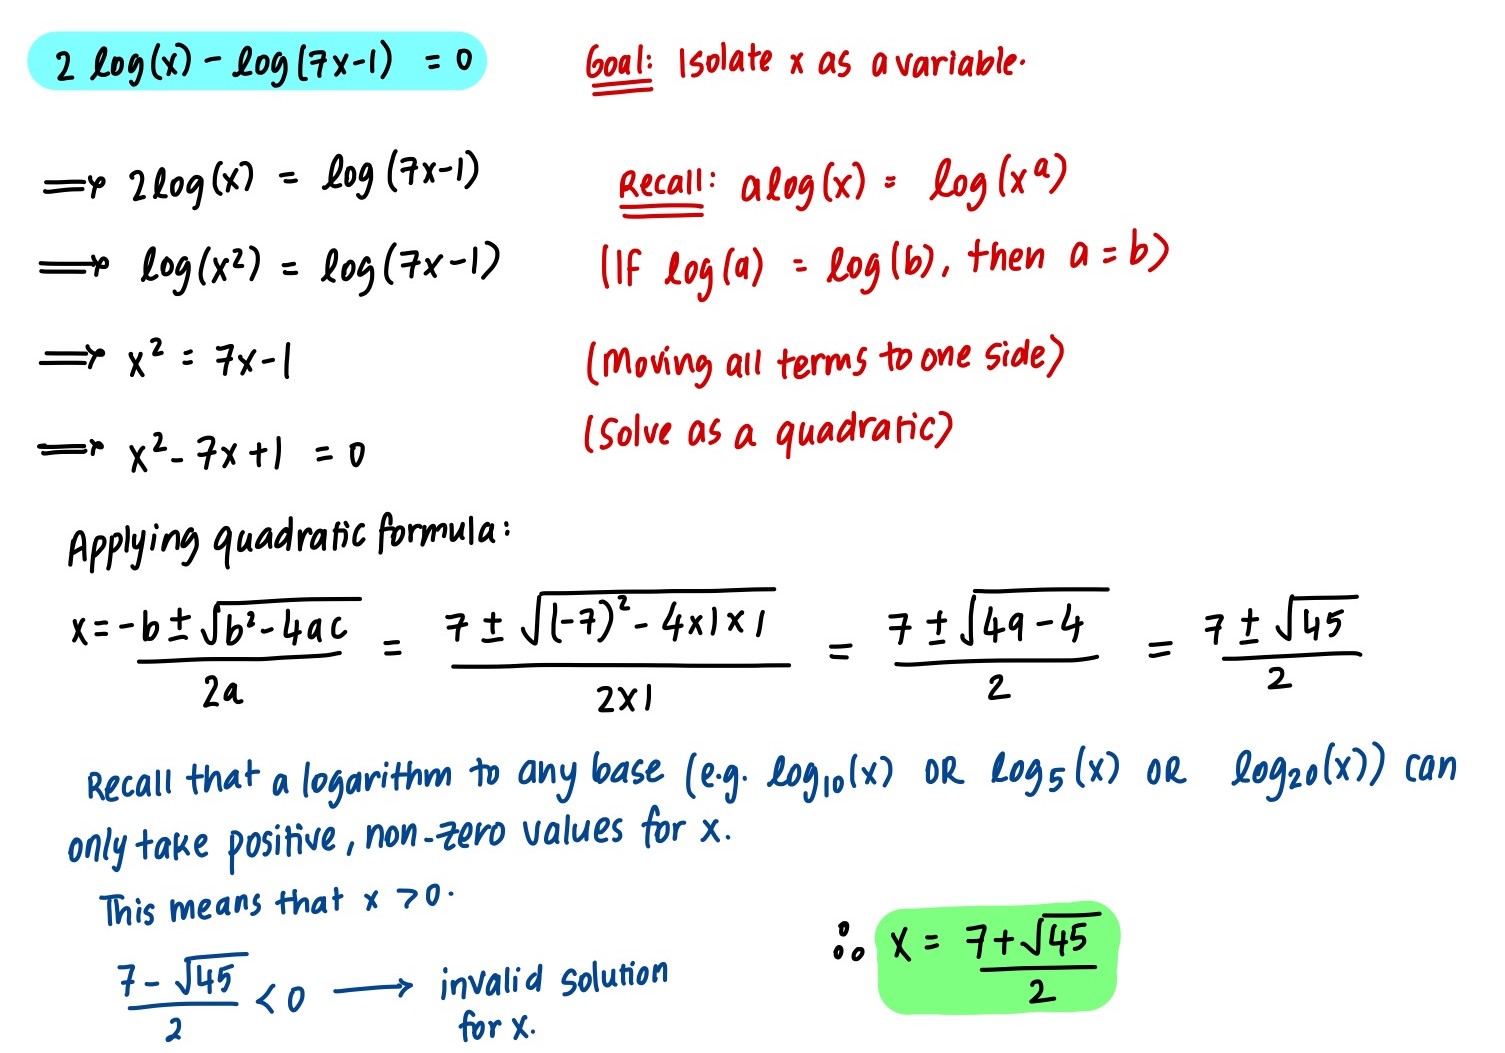 2 log(x) - log(7x-1) = 0 Goal: Isolate x as a variable.
⟹ 2log(x) = log(7x-1) Recall: alog(x) = log(x^a)
⟹ log(x²) = log(7x-1) (If log(a) = log(b), then a = b)
⟹ x² = 7x-1 (Moving all terms to one side)
⟹ x² - 7x + 1 = 0 (Solve as a quadratic)
Applying quadratic formula:
x = (-b ± √(b² - 4ac))/2a = (7 ± √((-7)² - 4x1x1))/(2x1) = (7 ± √(49 - 4))/2 = (7 ± √45)/2
Recall that a logarithm to any base (e.g. log₁₀(x) OR log₅(x) OR log₂₀(x)) can
only take positive, non-zero values for x.
This means that x > 0.
(7 - √45)/2 < 0 ⟶ invalid solution
for x.
∴ x = (7 + √45)/2